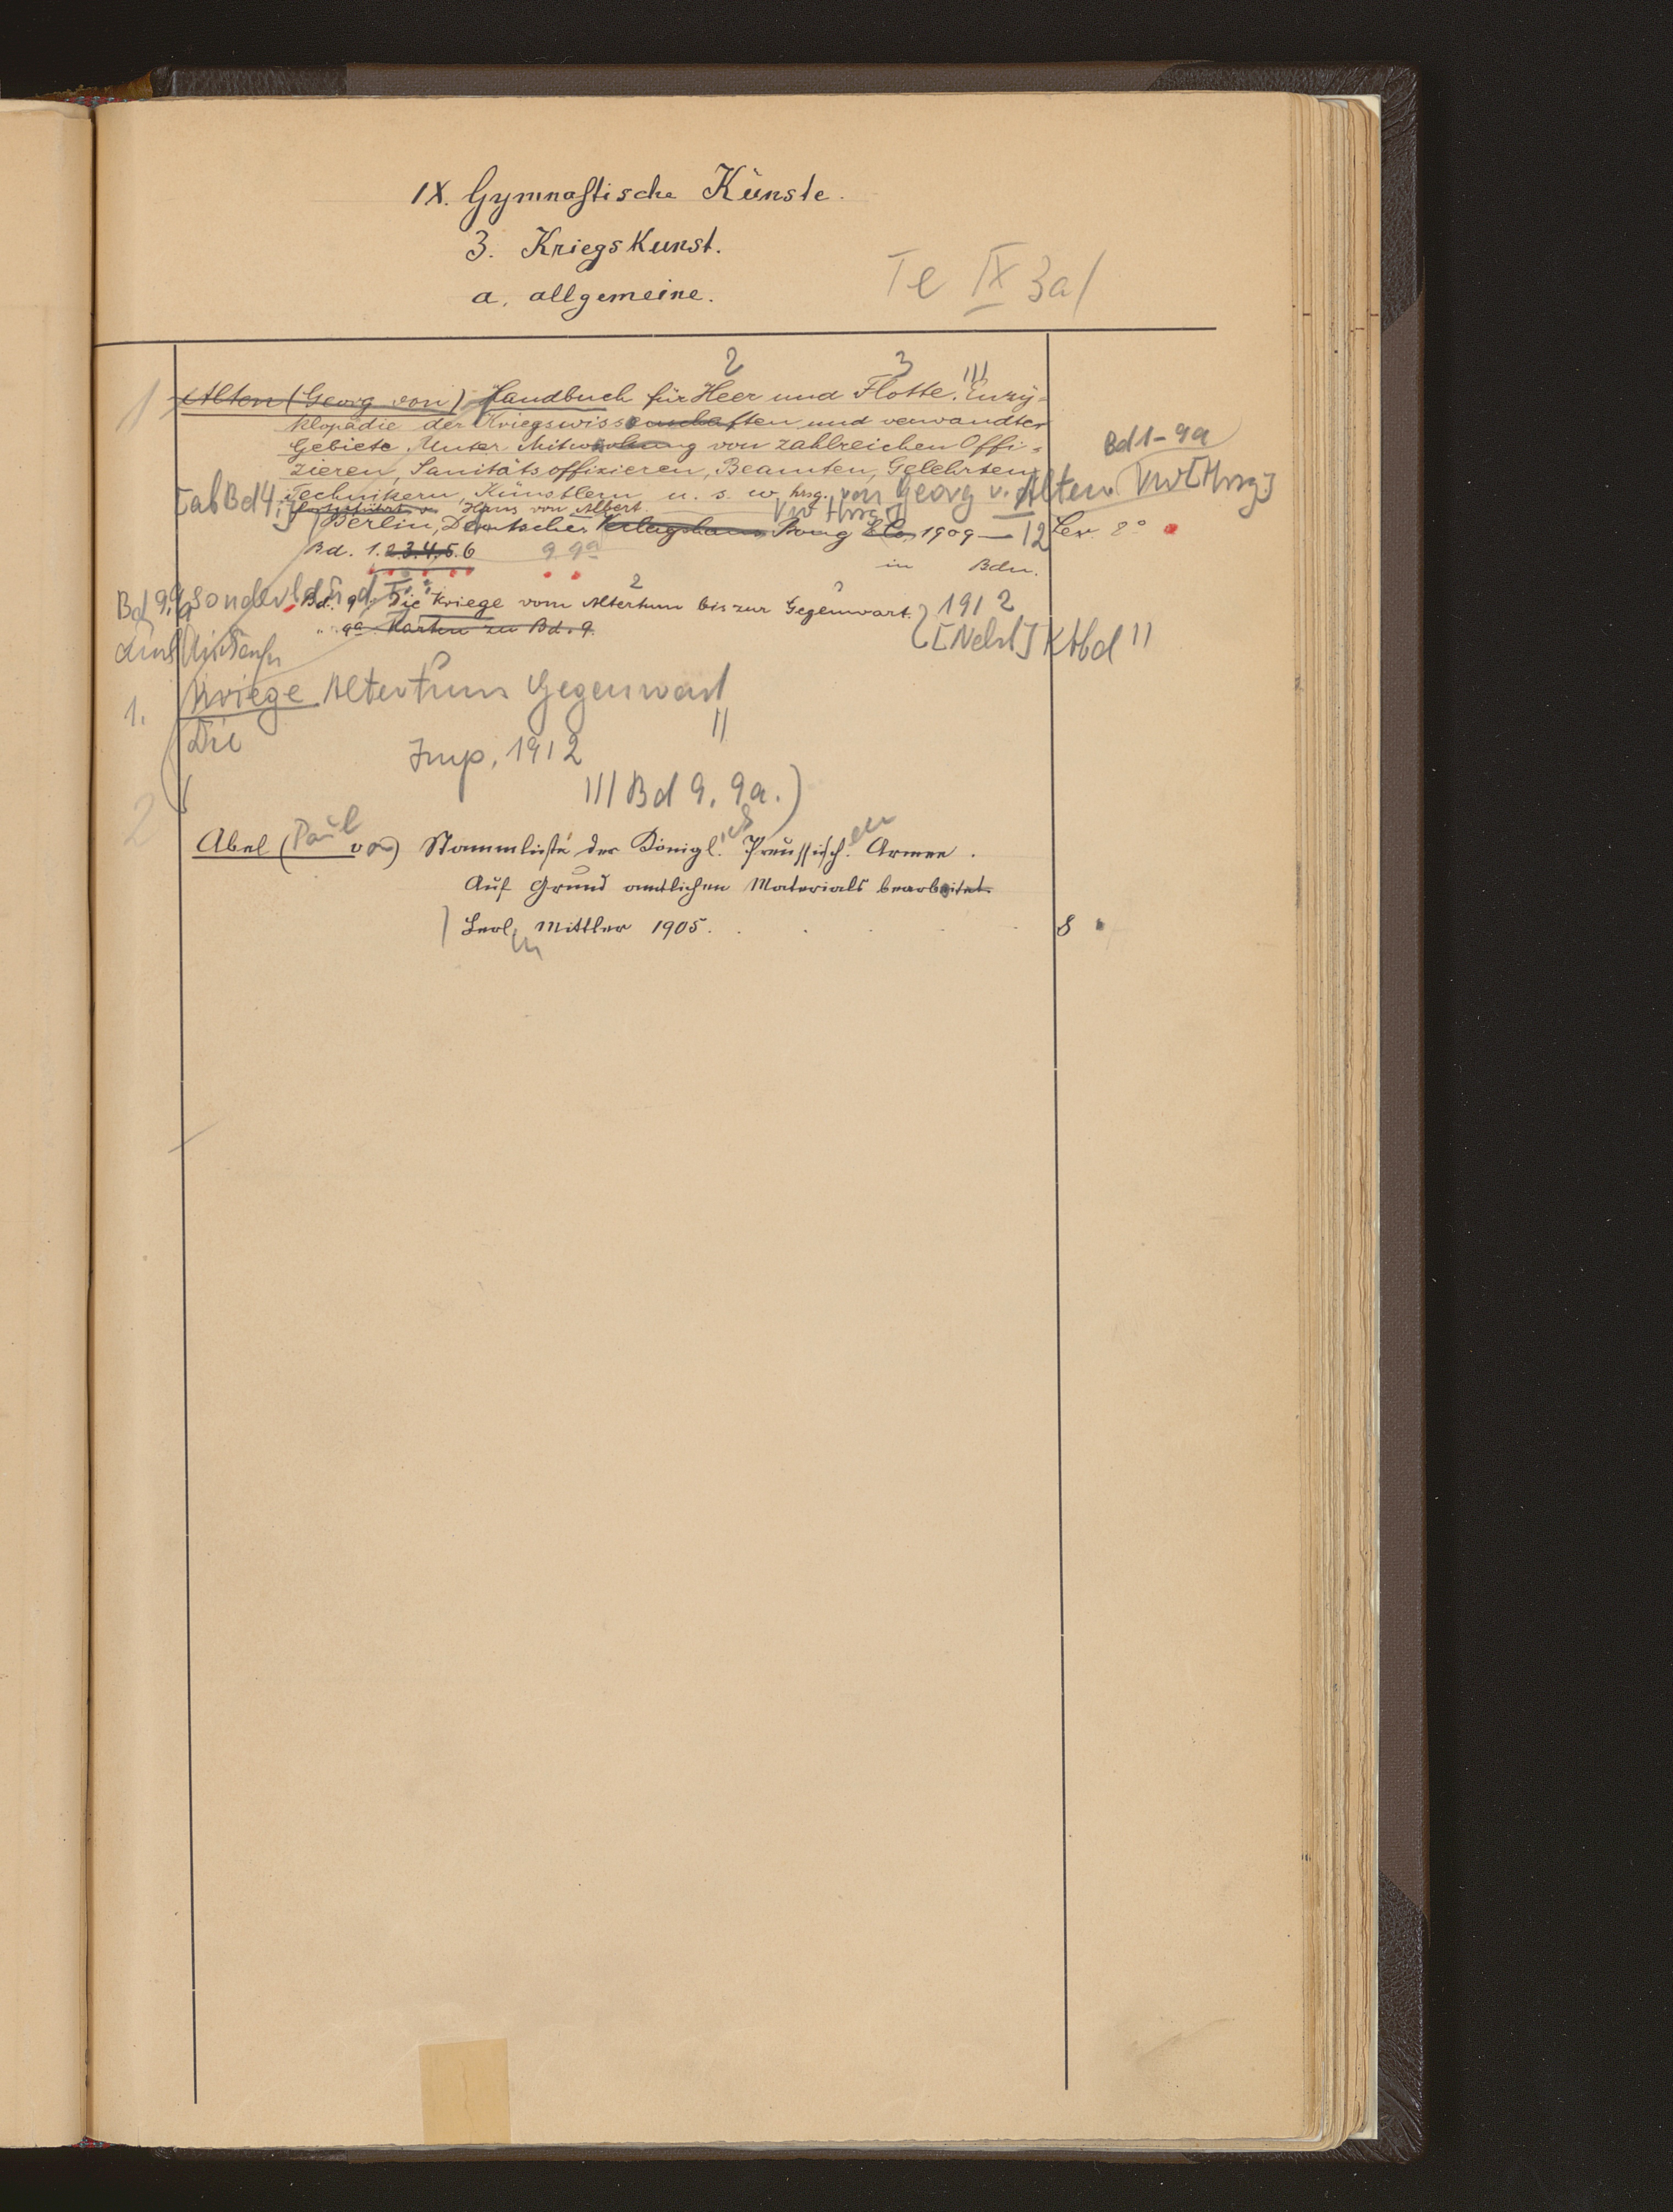 IX. Gymnastische Künste.
3. Kriegskunst.
a. allgemeine.
Te IX 3a/
2 3 III
1 Alten (Georg von) Handbuch für Heer und Flotte. Enzy=
klopädie der Kriegswissenschaften und verwandter
Gebiete. Unter Mitwirkung von zahlreichen Offi=
Bd 1-9a
zieren, Sanitätsoffizieren, Beamten, Gelehrten,
Technikern, Künstlern u. s. w. hrsg. von Georg v. Alten VW [Hrsg]
[ab Bd 4: Hans von Albert. VW Hrsg]
Berlin, Deutsches Verlagshaus Bong & Co, 1909 — 12 Lex. 8°
Bd. 1.2.3.4.5.6 9 9a in Bdn.
Bd 9.9a sonderbd
2
Bd. 9. Die Kriege vom Altertum bis zur Gegenwart. 1912
" 9a Karten zu Bd. 9. [Nebst] Ktbd II
1. Kriege Altertum Gegenwart
Die II
Imp. 1912
III Bd 9. 9a.)
2
Abel (Paul von) Stammliste der Königl. Preussisch.en Armee.
Auf Grund amtlichen Materials bearbeitet.
Berlin, Mittler 1905. 8